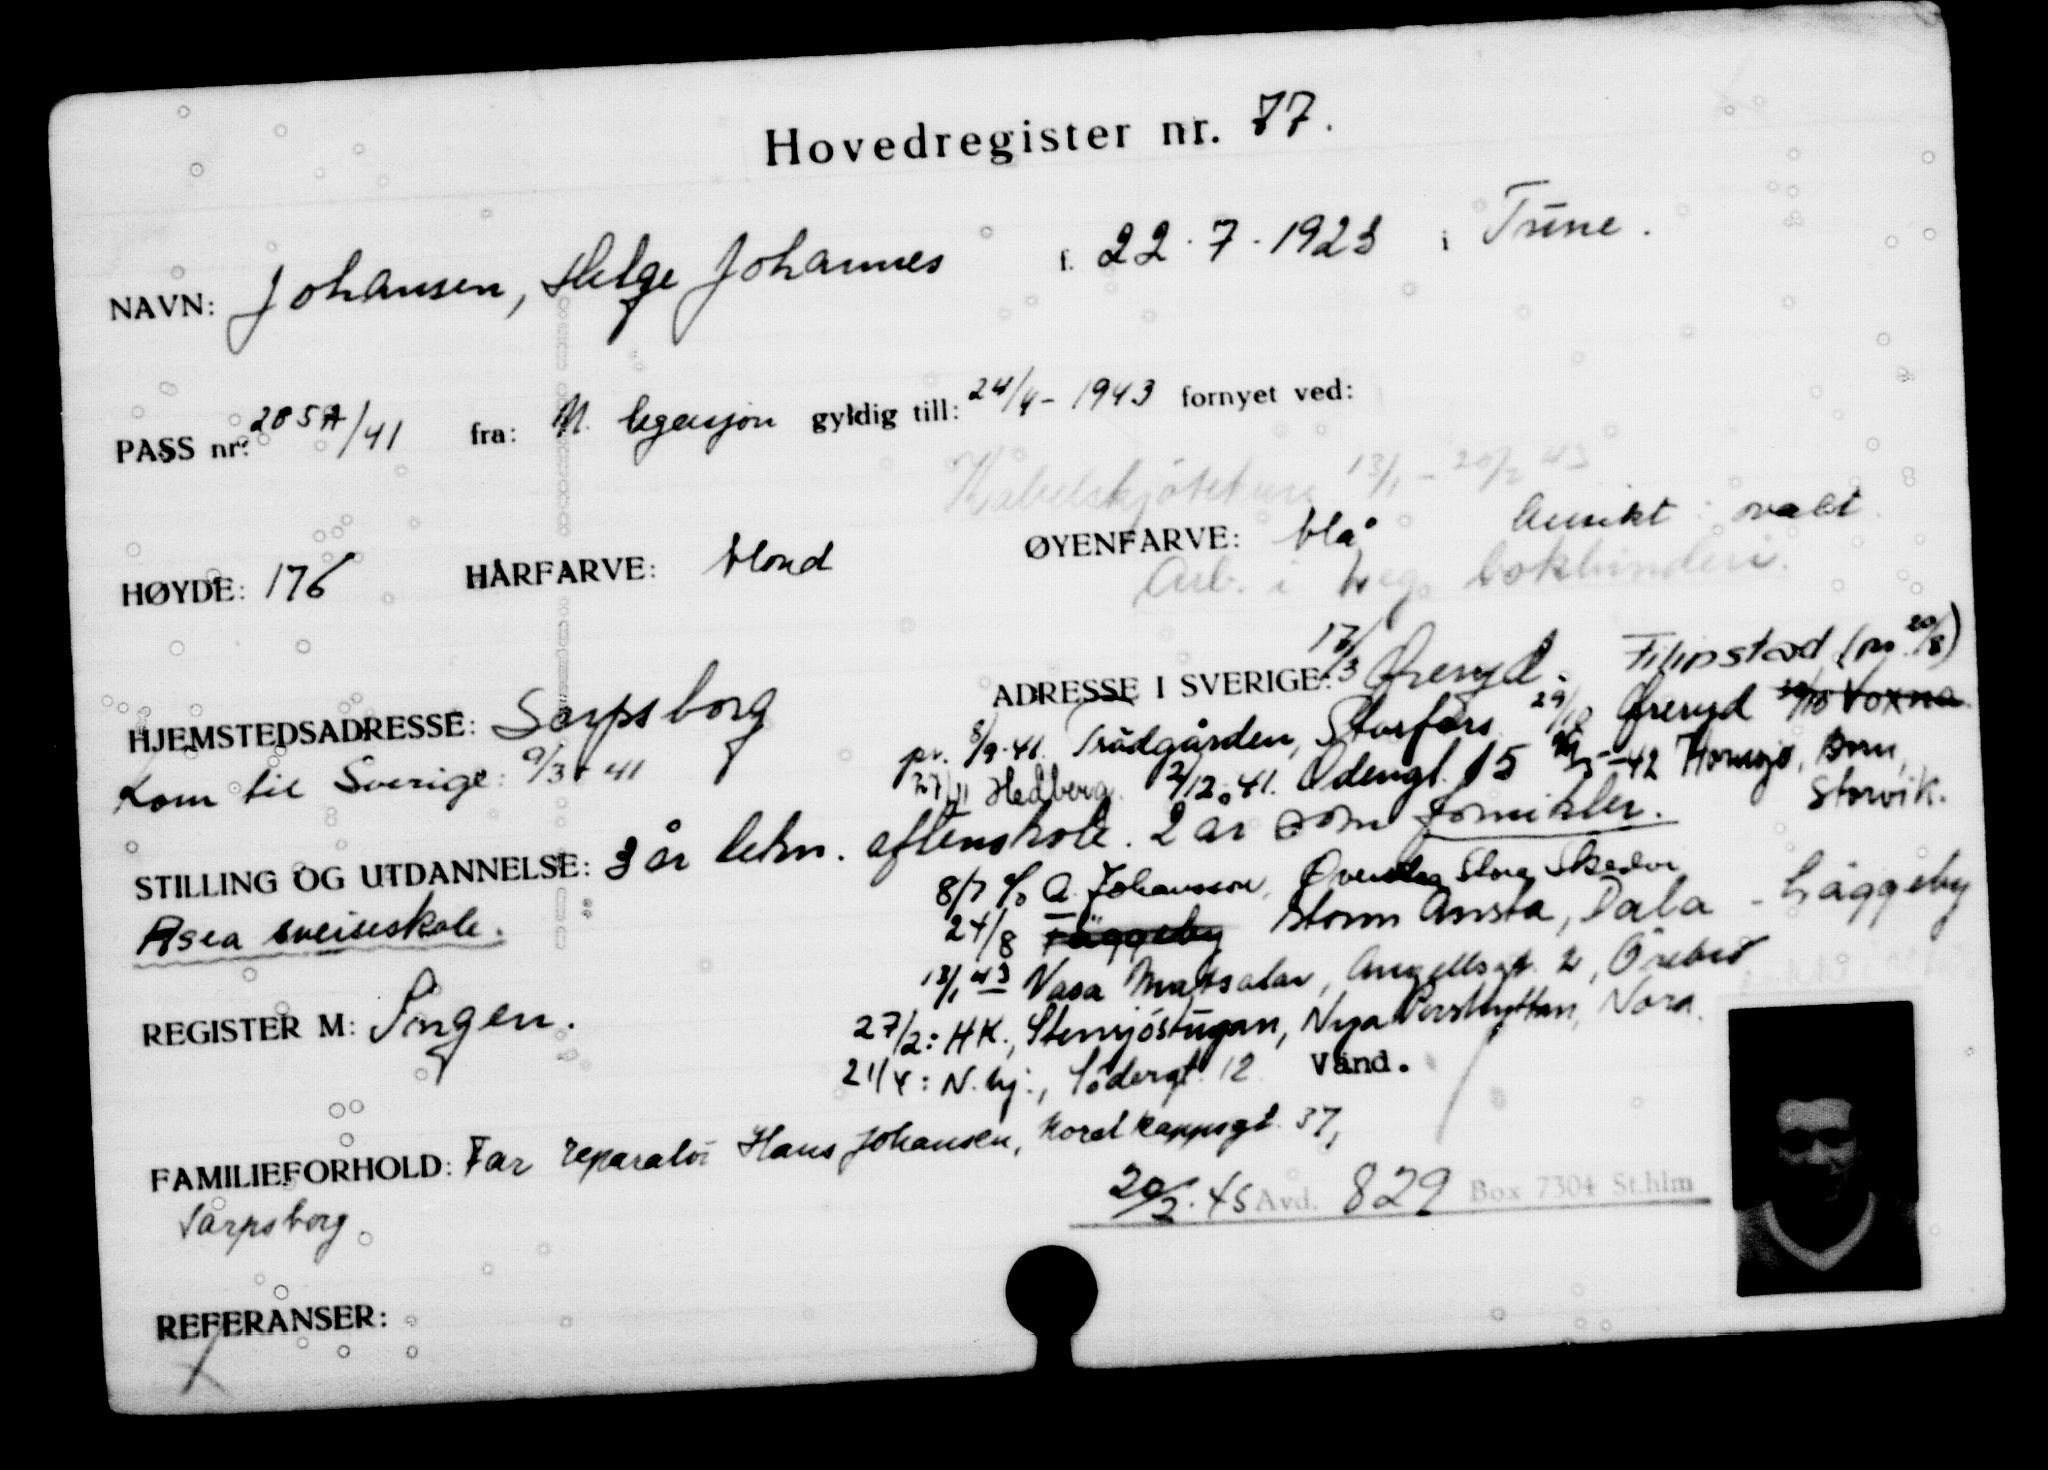 Hovedregister nr. 77.
NAVN: Johansen, Helge Johannes f. 22.7.1923 i Tune.
PASS nr: 285A/41 fra: N. legasjon gyldig till: 24/4-1943 fornyet ved:
13/1 - 20/2 43
HØYDE: 176 HÅRFARVE: blond ØYENFARVE: blå Ansikt: ovalt
Arb. i leg. bokbinderi.
HJEMSTEDSADRESSE: Sarpsborg ADRESSE I SVERIGE: 17/3 Øreryd. Filipstad (pr. 20/8)
pr. 8/9-41. Trädgården, Storfors 29/10 Øreryd Voxna
Kom til Sverige: 9/3-41 27/11 Hedberg. 2/12.41. Odengt. 15 -42 Hornsjö, Born,
Storvik.
STILLING OG UTDANNELSE: 3 år tekn. aftenskole. 2 år som fornikler.
Asea sveiseskole.
8/7 c/o A. Johansson, Stora Skedvi
24/8 Läggeby Storm Ansta, Dala - Läggeby
13/1 43 Vasa Matsalar, Angellsgt. 2, Örebro
REGISTER M: Ingen. 27/2: HK., Stensjöstugan, Nya Pershyttan, Nora.
21/4: N. hj., Södergt. 12 Vänd.
FAMILIEFORHOLD: Far reparatør Hans Johansen, Nordkappsgt. 37,
Sarpsborg.
20/2.45 Avd. 829 Box 7304 St.hlm
REFERANSER: